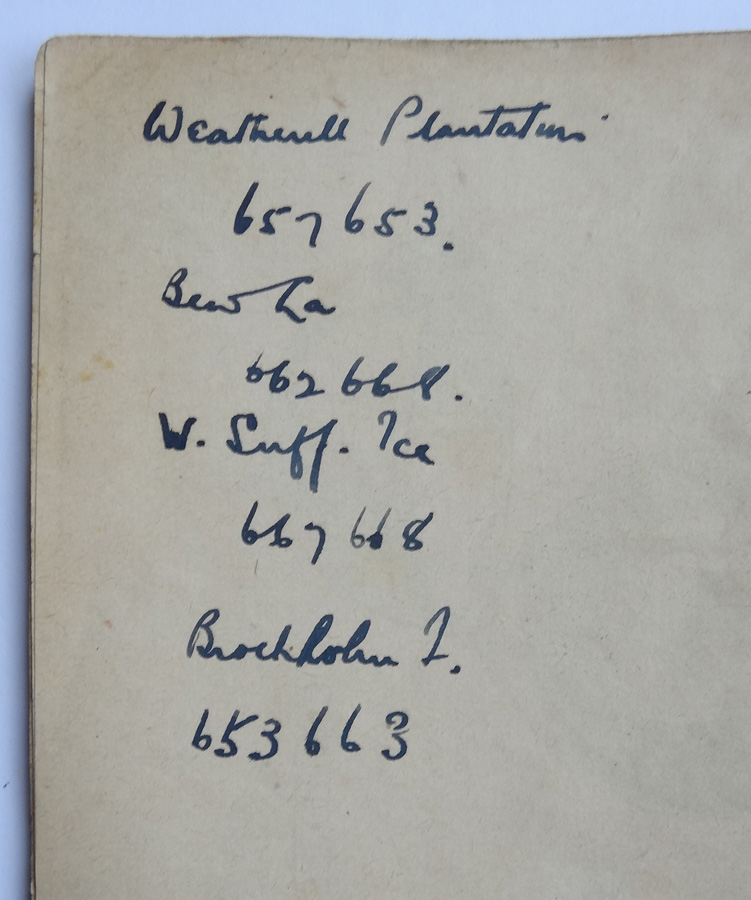 Weatherell Plantation
657 653.
Bew La
662 668.
W. Suff.
667 668
Brockholm
653 663